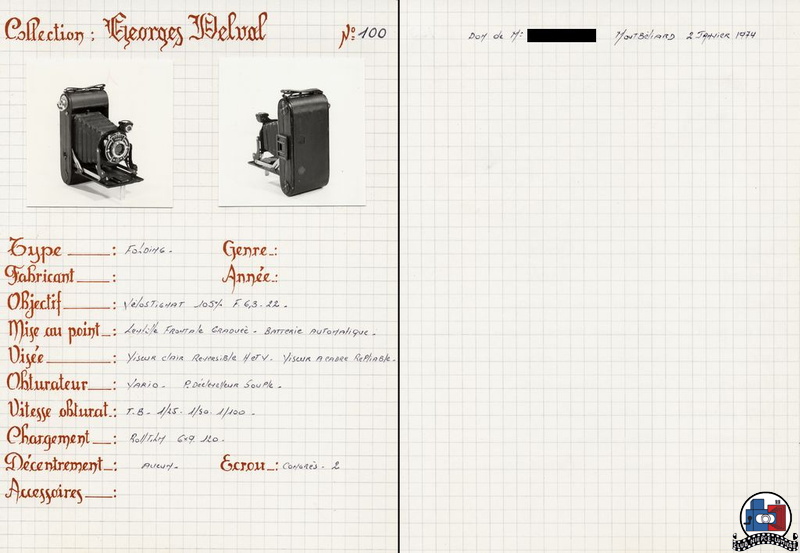 Collection : Georges Delval N°: 100
Type : Folding -
Genre :
Fabricant :
Année :
Objectif : Vélostigmat 105% F. 6,3 - 22 -
Mise au point : Lentille Frontale Graduée - Batterie automatique -
Visée : Viseur clair Reversible H et V - Viseur à cadre Repliable -
Obturateur : Vario - P. Déclencheur Souple -
Vitesse obturat : T. B - 1/25 - 1/50 - 1/100 -
Chargement : Rollfilm 6x9 120 -
Décentrement : Aucun - Ecrou : Congrès - 2
Accessoires :
Don de Mr: Montbéliard 2 Janvier 1974